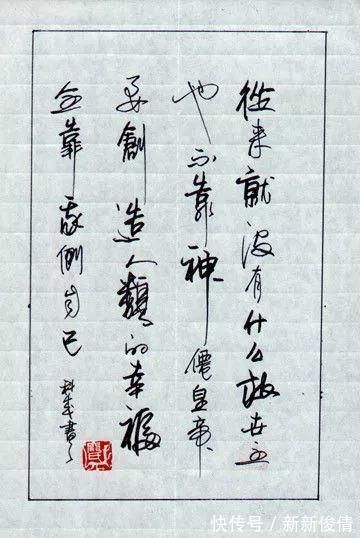 從来就没有什么救世主
也不靠神僊皇帝
要創造人類的幸福
全靠我們自己
書
快传号 / 新新俊倩